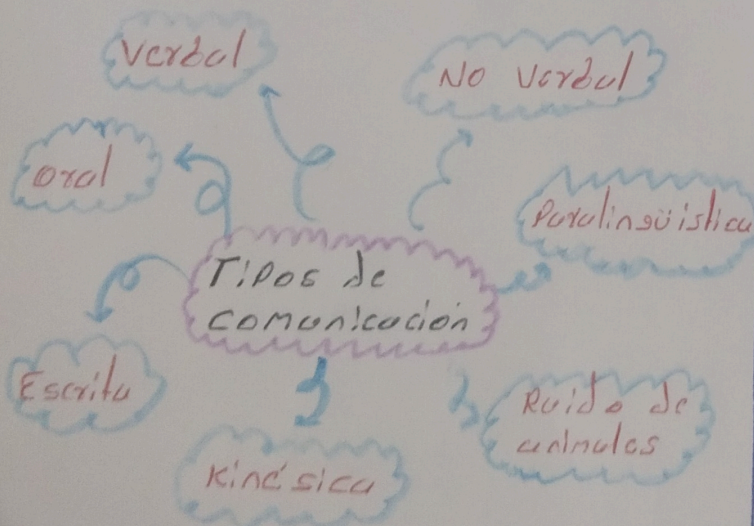 Verbal
No verbal
Oral
Paralingüística
Tipos de
comunicación
Escrita
Ruido de
animales
Kinésica